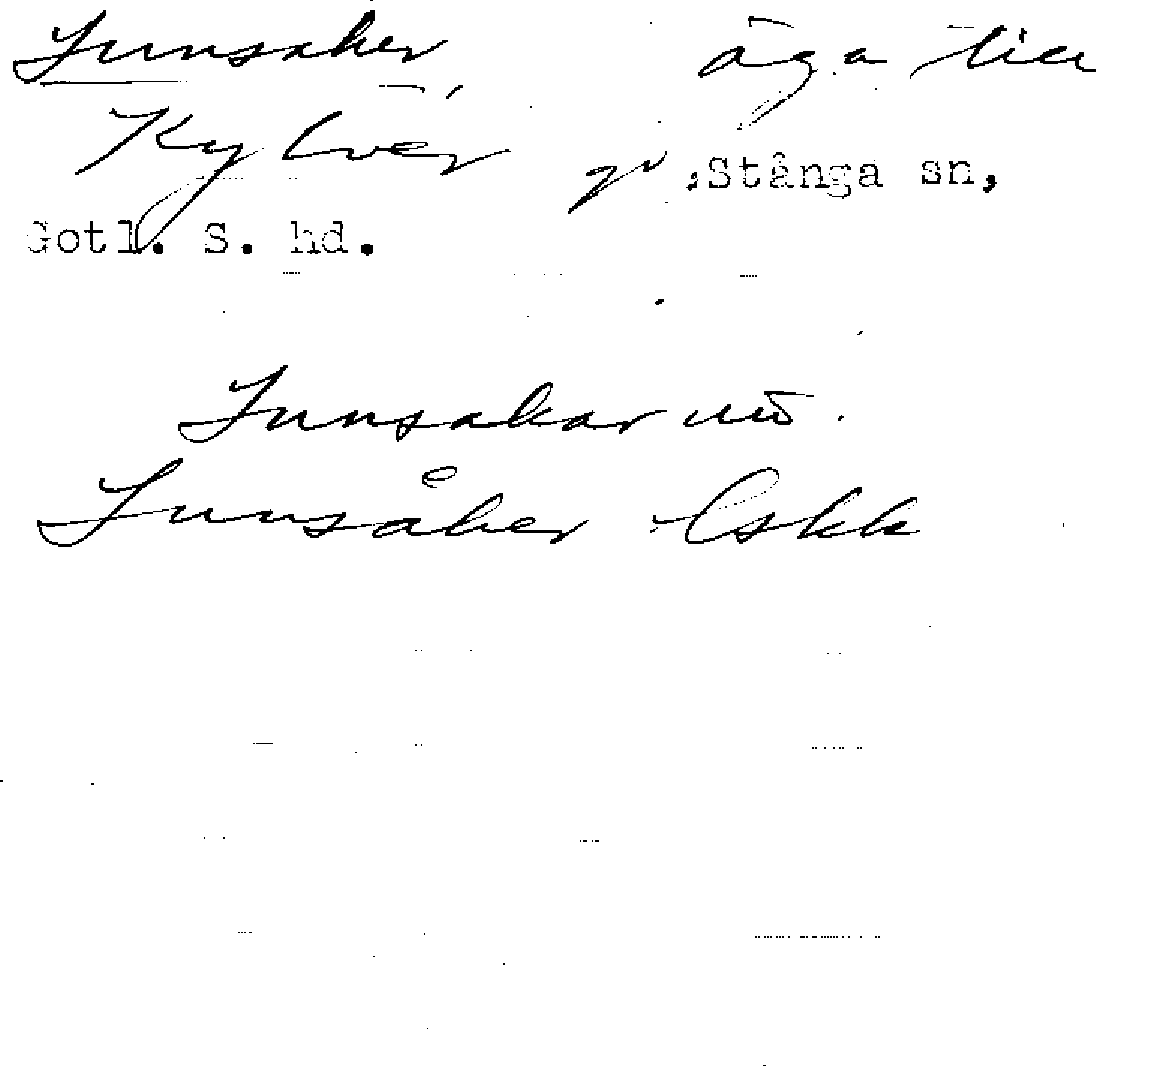 Sunsaker, äga till
Kylver gd, Stånga sn,
Gotl. S. hd.
Sunsakar
Sunsåker Eskk